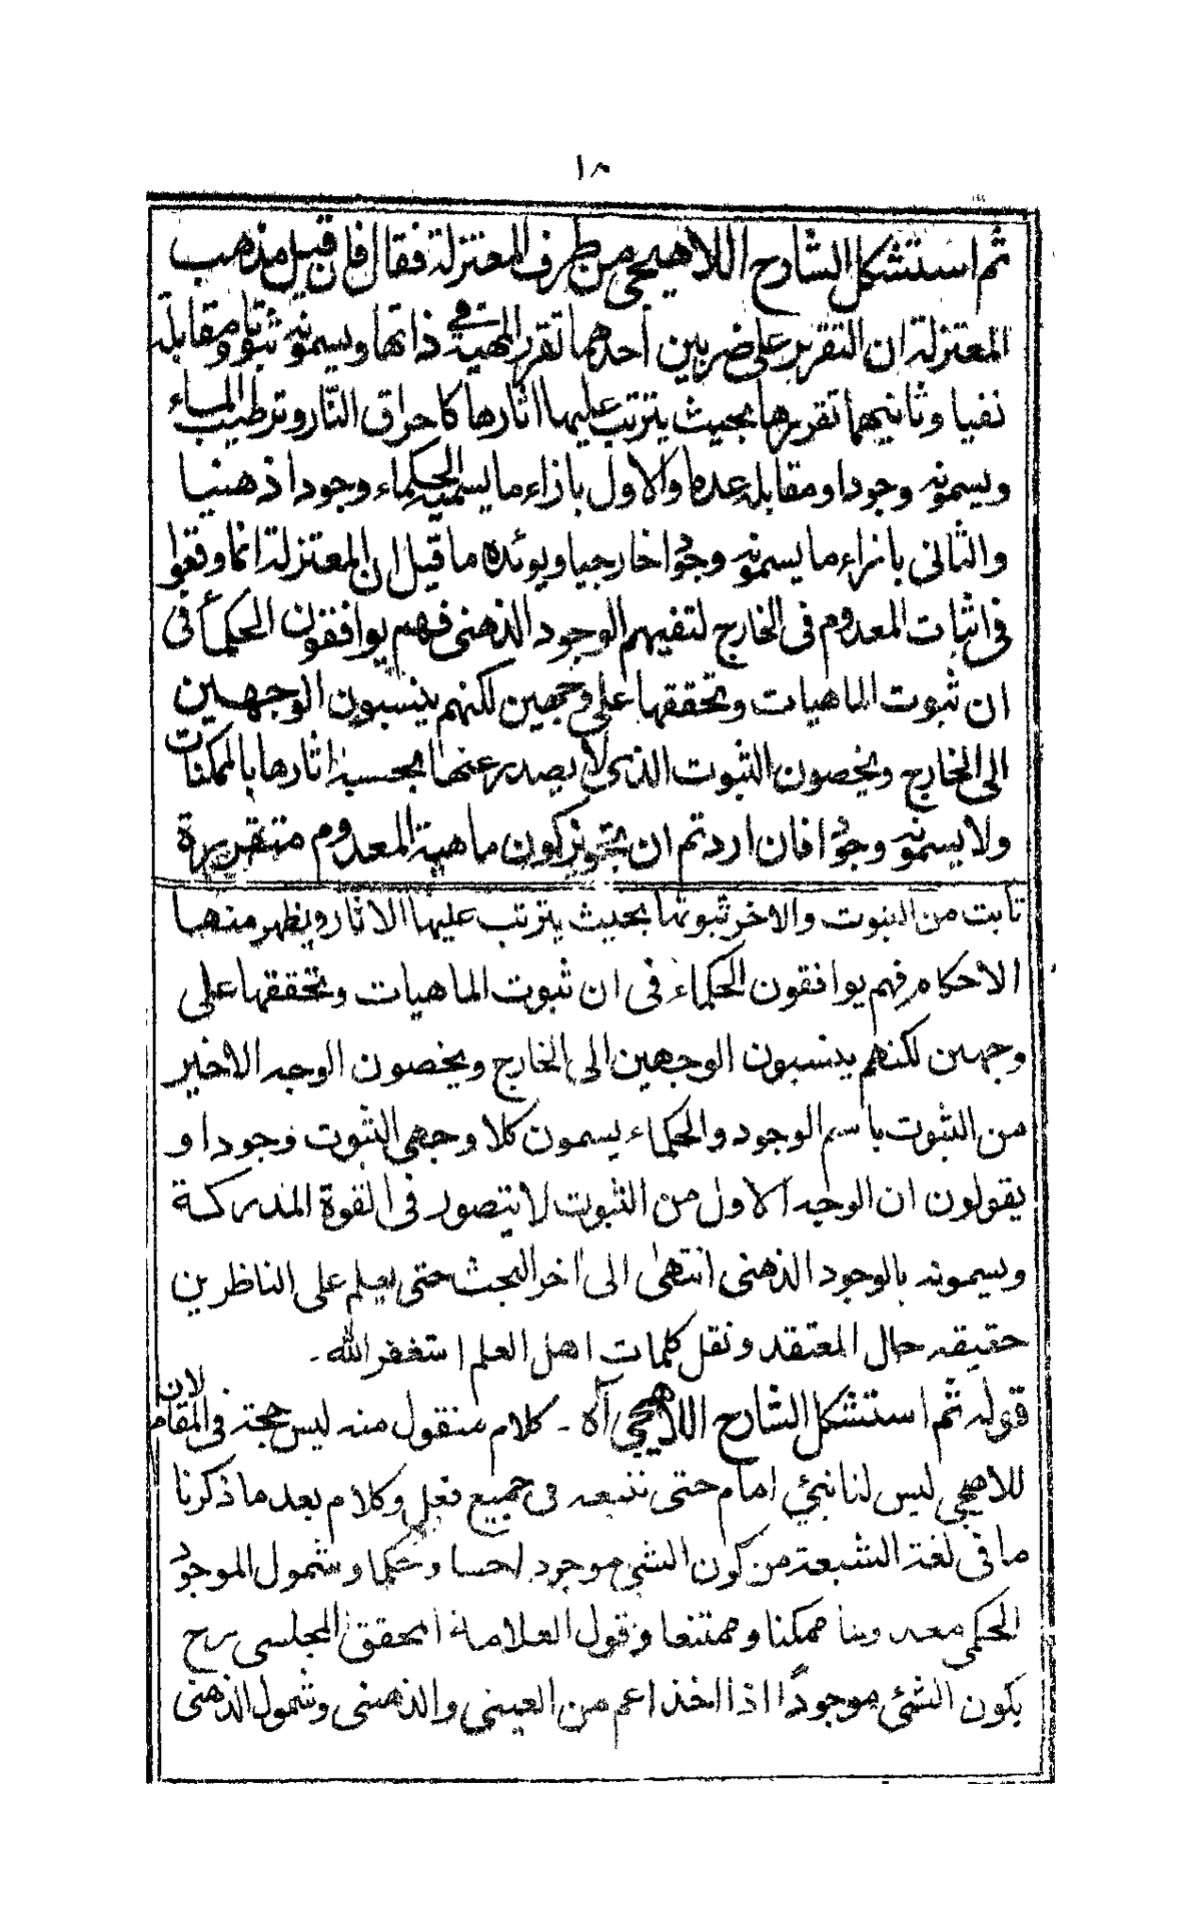 ١٨
ثم استشكل الشارح اللاهيجى من طرف المعتزلة فقال فان قيل مذهب
المعتزلة ان التقرير على ضربين احدهما تقرر المهية فى ذاتها ويسمونه ثبوتا ومقابله
نفيا وثانيهما تقريرها بحيث يترتب عليها اثارها كاحراق النار وترطيب الماء
ويسمونه وجودا ومقابله عدما والاول بازاء ما يسميه الحكماء وجودا ذهنيا
والثانى بازاء ما يسمونه وجودا خارجيا ويوئده ما قيل ان المعتزلة انما وقعوا
فى اثبات المعدوم فى الخارج لنفيهم الوجود الذهنى فهم يوافقون الحكمأ فى
ان ثبوت الماهيات وتحققها على وجهين لكنهم ينسبون الوجهين
الى الخارج ويخصون الثبوت الذى لا يصدر عنها بحسبه اثارها بالممكنات
ولا يسمونه وجودا فان اردتم ان تجويز كون ماهية المعدوم متقريرة
ثابت من الثبوت والاخر ثبوتها بحيث يترتب عليها الاثار ويظهر منها
الاحكام فهم يوافقون الحكماء فى ان ثبوت الماهيات وتحققها على
وجهين لكنهم ينسبون الوجهين الى الخارج ويخصون الوجه الاخير
من الثبوت باسم الوجود والحكماء يسمون كلا وجهى الثبوت وجودا و
يقولون ان الوجه الاول من الثبوت لا يتصور فى القوة المدركة
ويسمونه بالوجود الذهنى انتهى الى اخر البحث حتى يعلم على الناظرين
حقيقه حال المعتقد ونقل كلمات اهل العلم استغفر الله ـ
قوله ثم استشكل الشارح اللاهيجى آه ـ كلام منقول منه ليس حجة فى المقام لان
للاهيجى ليس لنا نبئ امام حتى نتبعه فى جميع فعل وكلام بعد ما ذكرنا
ما فى لغة الشيعة من كون الشئ موجود احسا وحكما وشمول الموجود
الحكمى معه ممكنا وممتنعا وقول العلامة المحقق المجلسى رح
بكون الشئ موجودًا اذا اخذ اعم من العينى والذهنى وشمول الذهنى